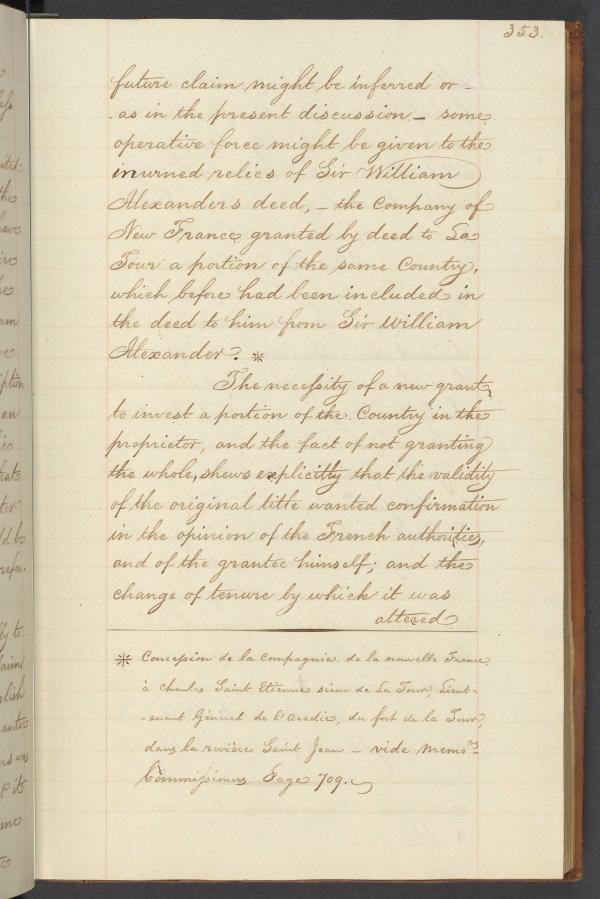 353.
future claim might be inferred or -
- as in the present discussion - some
operative force might be given to the
inurned relics of Sir William
Alexanders deed, - the Company of
New France granted by deed to La
Tour a portion of the same Country,
which before had been included in
the deed to him from Sir William
Alexander. *
The necessity of a new grant,
to invest a portion of the Country in the
proprietor, and the fact of not granting
the whole, shews explicitly that the validity
of the original title wanted confirmation
in the opinion of the French authorities,
and of the grantee himself; and the
change of tenure by which it was
altered
* Concession de la Compagnie de la nouvelle France
à Charles Saint Etienne sieur de La Tour, Lieut=
=enant Général de l'Acadie, du fort de la Tour,
dans la rivière Saint Jean - vide Memo.rs
Commissions Page 709.